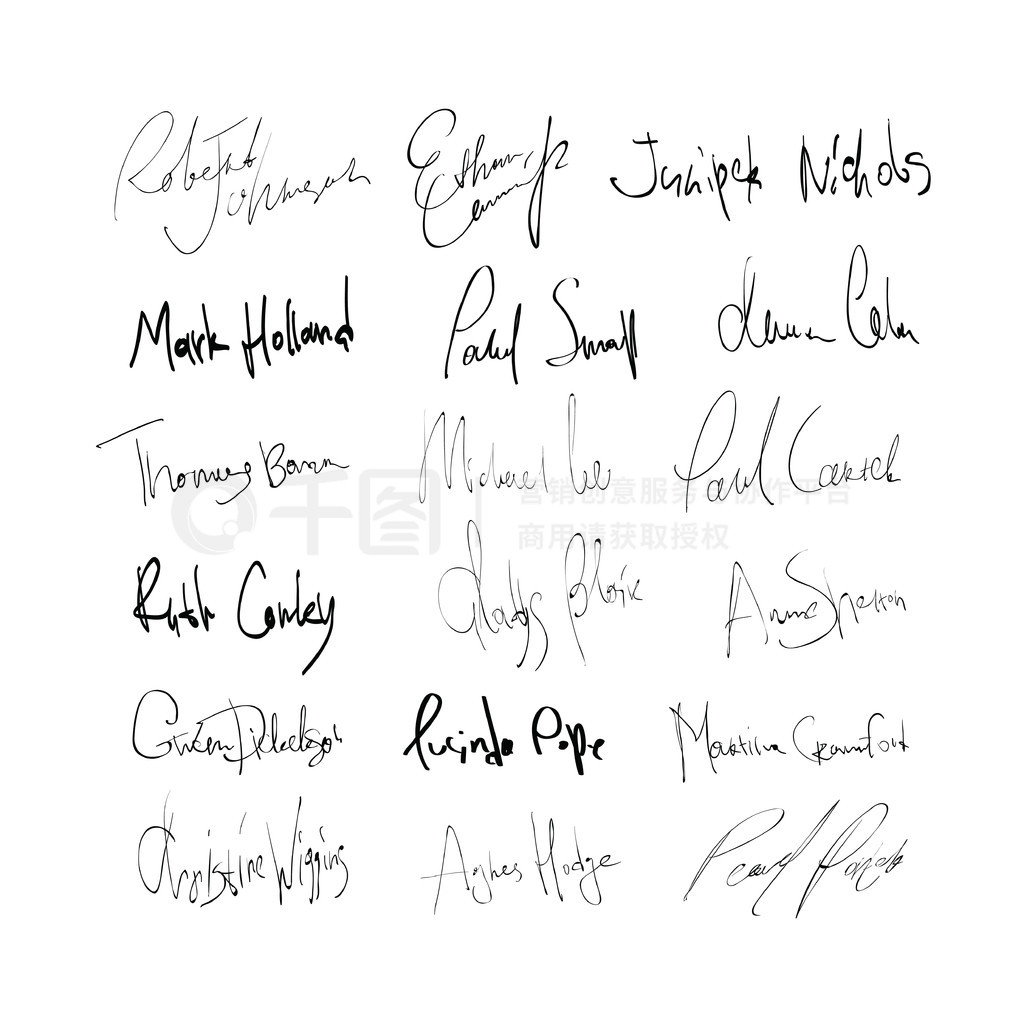 Robert Johnson
Ethan
Juniper Nichols
Mark Holland
Paul Small
Thomas Baron
Michael Lee
Paul Carter
千图
营销创意服务与协作平台
商用请获取授权
Ruth Conley
Gladys Blair
Anne Shelton
Gwen Dickerson
Lucinda Pope
Martina Crawford
Christine Wiggins
Agnes Hodge
Pearl